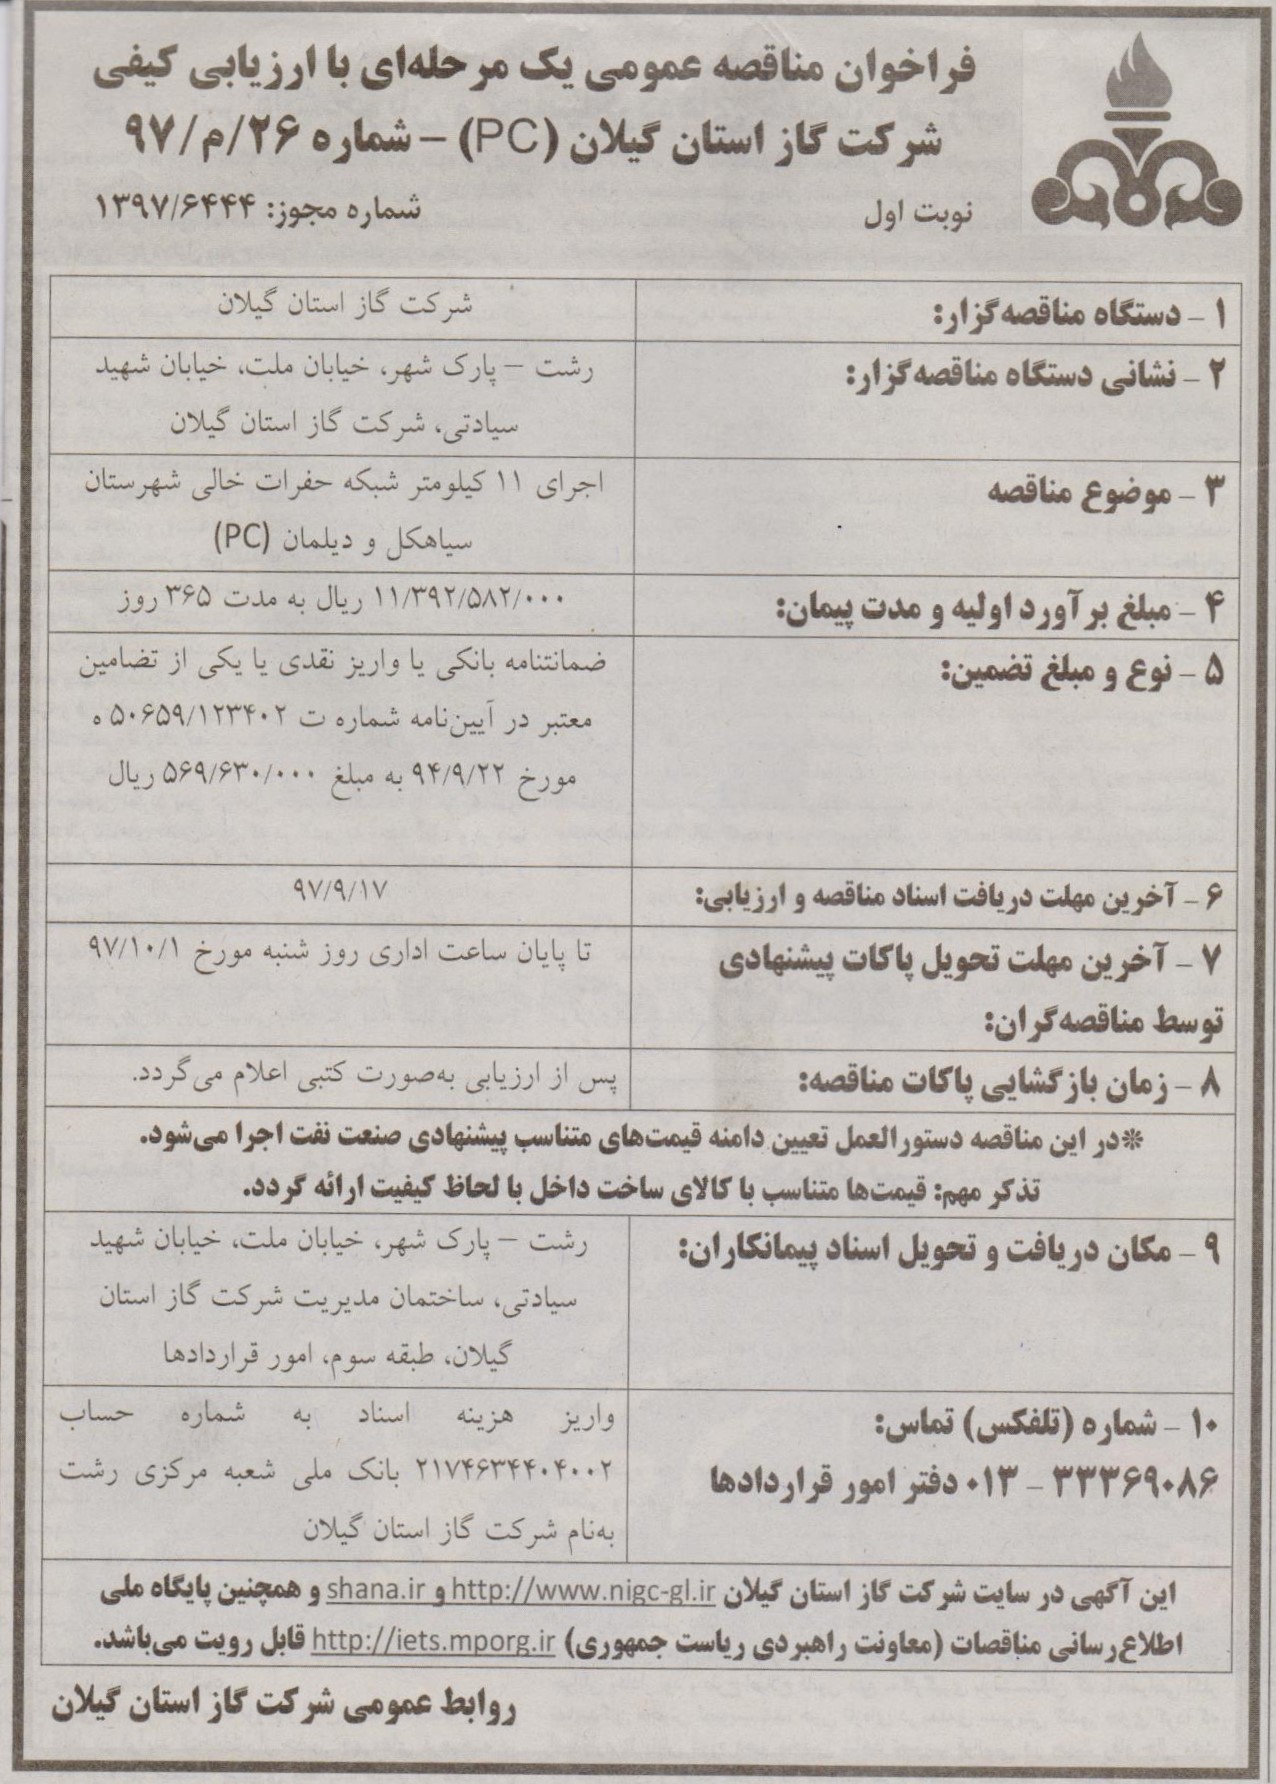 فراخوان مناقصه عمومی یک مرحله‌ای با ارزیابی کیفی
شرکت گاز استان گیلان (PC) – شماره ۲۶/م/۹۷
نوبت اول
شماره مجوز: ۱۳۹۷/۶۴۴۴
۱ – دستگاه مناقصه‌گزار:
شرکت گاز استان گیلان
۲ – نشانی دستگاه مناقصه‌گزار:
رشت – پارک شهر، خیابان ملت، خیابان شهید
سیادتی، شرکت گاز استان گیلان
۳ – موضوع مناقصه
اجرای ۱۱ کیلومتر شبکه حفرات خالی شهرستان
سیاهکل و دیلمان (PC)
۴ – مبلغ برآورد اولیه و مدت پیمان:
۱۱/۳۹۲/۵۸۲/۰۰۰ ریال به مدت ۳۶۵ روز
۵ – نوع و مبلغ تضمین:
ضمانتنامه بانکی یا واریز نقدی یا یکی از تضامین
معتبر در آیین‌نامه شماره ت ۵۰۶۵۹/۱۲۳۴۰۲ ه
مورخ ۹۴/۹/۲۲ به مبلغ ۵۶۹/۶۳۰/۰۰۰ ریال
۶ – آخرین مهلت دریافت اسناد مناقصه و ارزیابی:
۹۷/۹/۱۷
۷ – آخرین مهلت تحویل پاکات پیشنهادی
توسط مناقصه‌گران:
تا پایان ساعت اداری روز شنبه مورخ ۹۷/۱۰/۱
۸ – زمان بازگشایی پاکات مناقصه:
پس از ارزیابی به‌صورت کتبی اعلام می‌گردد.
*در این مناقصه دستورالعمل تعیین دامنه قیمت‌های متناسب پیشنهادی صنعت نفت اجرا می‌شود.
تذکر مهم: قیمت‌ها متناسب با کالای ساخت داخل با لحاظ کیفیت ارائه گردد.
۹ – مکان دریافت و تحویل اسناد پیمانکاران:
رشت – پارک شهر، خیابان ملت، خیابان شهید
سیادتی، ساختمان مدیریت شرکت گاز استان
گیلان، طبقه سوم، امور قراردادها
۱۰ – شماره (تلفکس) تماس:
۳۳۳۶۹۰۸۶ – ۰۱۳ دفتر امور قراردادها
واریز هزینه اسناد به شماره حساب
۲۱۷۴۶۳۴۴۰۴۰۰۲ بانک ملی شعبه مرکزی رشت
به‌نام شرکت گاز استان گیلان
این آگهی در سایت شرکت گاز استان گیلان http://www.nigc-gl.ir و shana.ir و همچنین پایگاه ملی
اطلاع‌رسانی مناقصات (معاونت راهبردی ریاست جمهوری) http://iets.mporg.ir قابل رویت می‌باشد.
روابط عمومی شرکت گاز استان گیلان